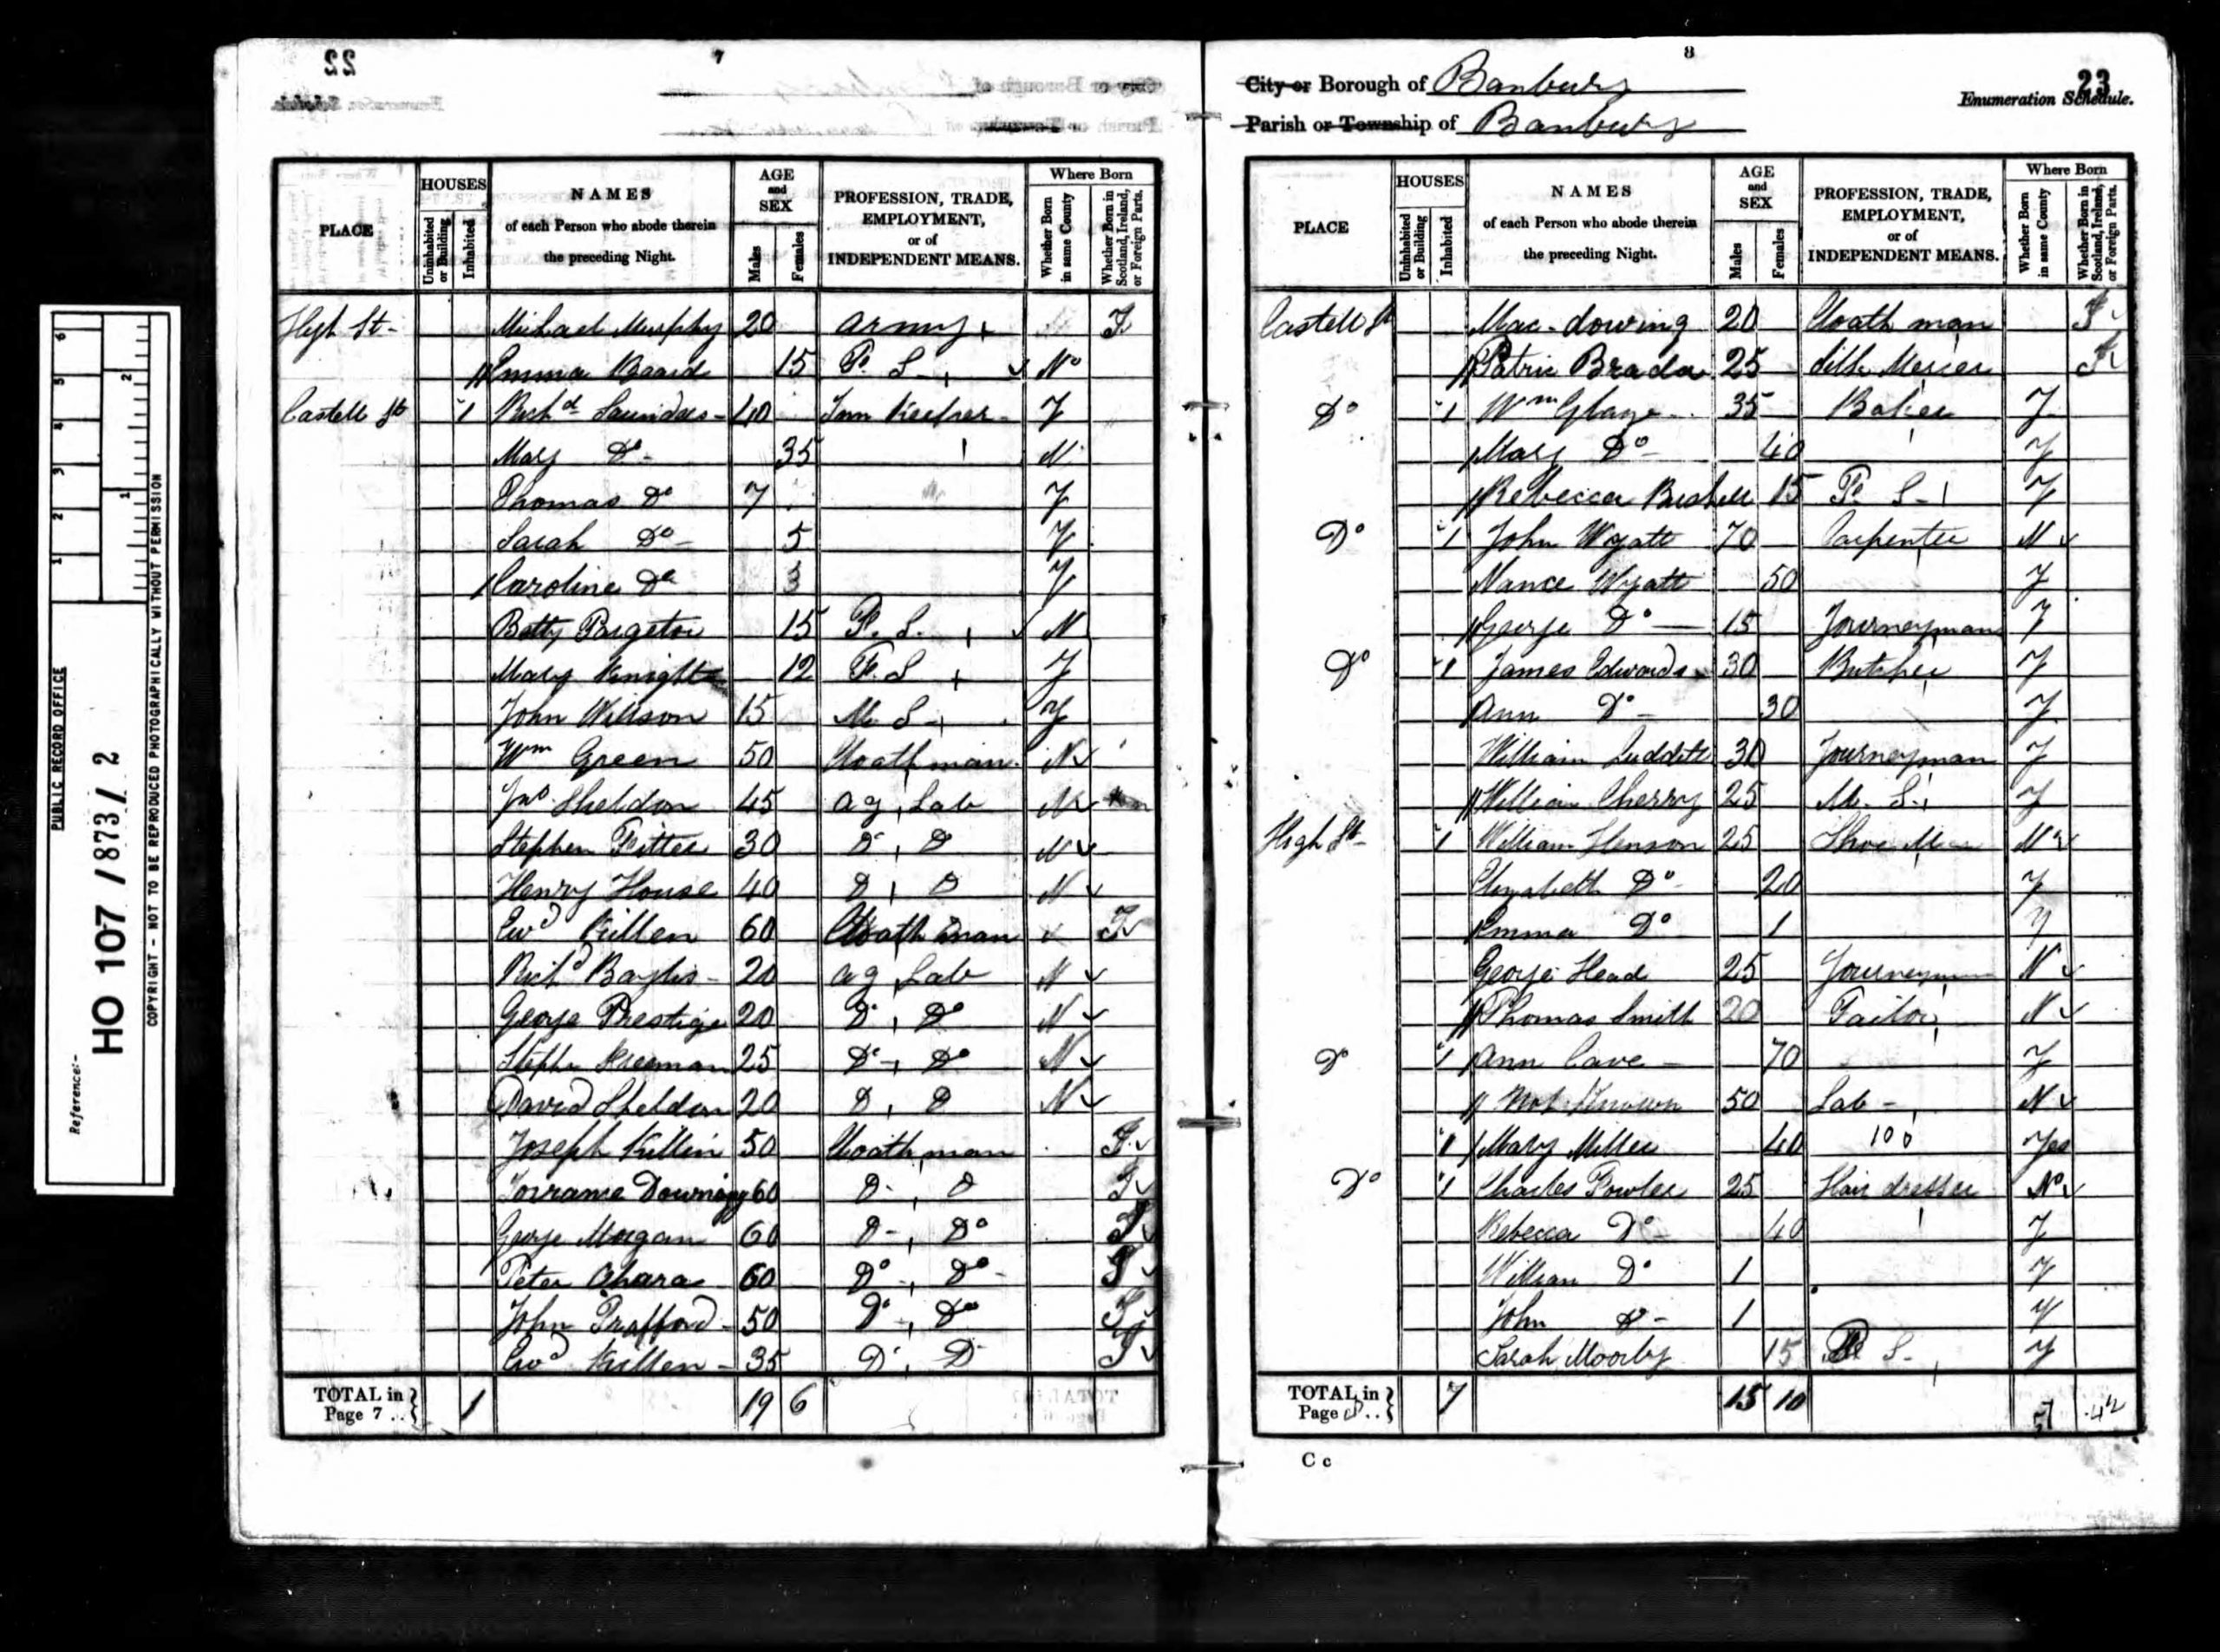 22
7
TOTAL in Page 7
PUBLIC RECORD OFFICE
Reference:-
HO 107 / 873 / 2
COPYRIGHT - NOT TO BE REPRODUCED PHOTOGRAPHICALLY WITHOUT PERMISSION
1 2 3 4 5 6
1 2
PLACE
HOUSES
Uninhabited or Building
Inhabited
NAMES
of each Person who abode therein
the preceding Night.
AGE and SEX
Males
Females
PROFESSION, TRADE,
EMPLOYMENT,
or of
INDEPENDENT MEANS.
Where Born
Whether Born in same County
Whether Born in Scotland, Ireland, or Foreign Parts.
High St- Michael Murphy 20 Army I
Emma Beard 15 F. S. No
Castell St 1 Richd Saunders 40 Inn Keeper Y
Mary Do 35 N
Thomas Do 7 Y
Sarah Do 5 Y
Caroline Do 3 Y
Betty Pargetor 15 F. S. N
Mary Knight 12 F. S Y
John Willson 15 M. S Y
Wm Green 50 N
Jno Sheldon 45 ag Lab N
Stephen 30 D D N
Henry House 40 D D N
Ewd Killen 60 I
Richd Baylis 20 ag Lab N
George Prestige 20 Do Do N
Freeman 25 Do Do N
David Sheldon 20 D D N
Joseph Killin 50 I
Downing 60 D D I
George Morgan 60 D Do I
Peter Ohara 60 Do Do I
John Trafford 50 Do Do I
Ewd Killen 35 D D I
1 19 6
8
City or Borough of Banbury
Parish or Township of Banbury
23
Enumeration Schedule.
PLACE
HOUSES
Uninhabited or Building
Inhabited
NAMES
of each Person who abode therein
the preceding Night.
AGE and SEX
Males
Females
PROFESSION, TRADE,
EMPLOYMENT,
or of
INDEPENDENT MEANS.
Where Born
Whether Born in same County
Whether Born in Scotland, Ireland, or Foreign Parts.
Castell St Mac-dowing 20 I
Patric Brada 25 Silk Mercer I
Do 1 Wm Glaze 35 Baker Y
Mary Do 40 Y
Rebecca Bushell 15 F. S Y
Do 1 John Wyatt 70 Carpenter N
Nance Wyatt 50 Y
George Do 15 Journeyman Y
Do 1 James Edwards 30 Butcher Y
Ann Do 30 Y
William Luddett 30 Journeyman Y
William Cherry 25 M. S. Y
High St 1 William Henson 25 Shoe M N
Elizabeth Do 20 Y
Emma Do 1 Y
George Head 25 Journeyman N
Thomas Smith 20 Tailor N
Do 1 Ann Cave 70 Y
Not Known 50 Lab N
1 Mary Miller 40 Yes
Do 1 Charles Fowler 25 Hair dresser No
Rebecca Do 40 Y
William Do 1 Y
John Do 1 Y
Sarah Moorby 15 S Y
TOTAL in Page
7 15 10
C c